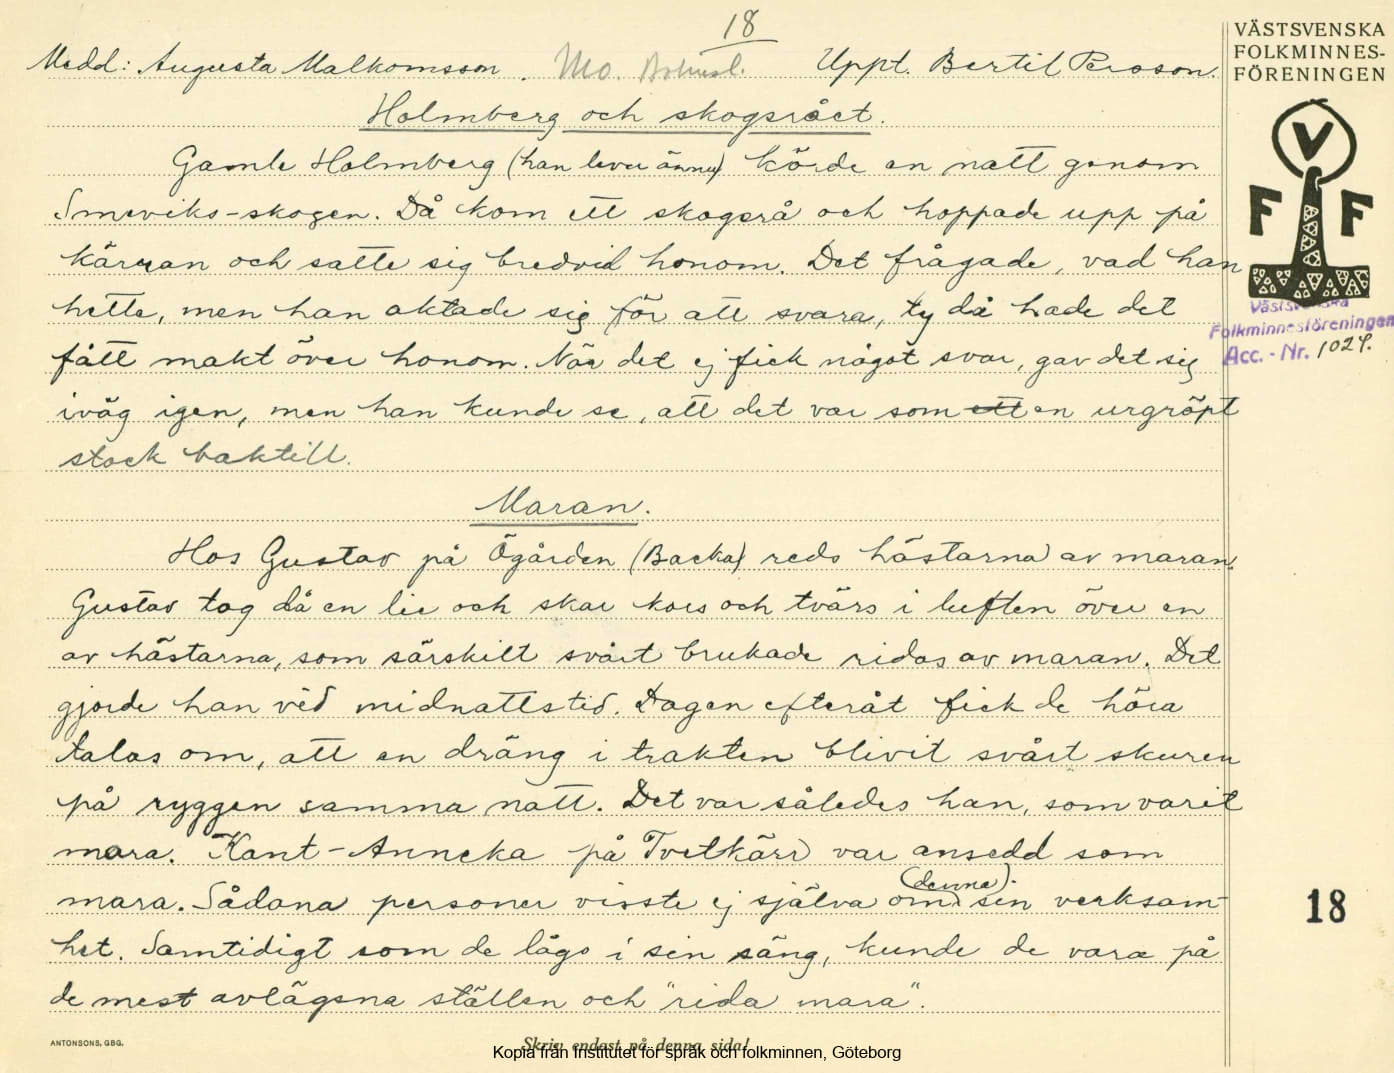 18
Medd: Augusta Malkomsson. Mo. Bohusl. Uppt. Bertil Persson.
VÄSTSVENSKA
FOLKMINNES-
FÖRENINGEN
Holmberg och skogsrået.
Gamle Holmberg (han lever ännu) körde en natt genom
Smeviks-skogen. Då kom ett skogsrå och hoppade upp på
kärran och satte sig bredvid honom. Det frågade, vad han
hette, men han aktade sig för att svara, ty då hade det
fått makt över honom. När det ej fick något svar, gav det sig
iväg igen, men han kunde se, att det var som ett en urgröpt
stock baktill.
V
F F
Västsvenska
Folkminnesföreningen
Acc. - Nr. 1024.
Maran.
Hos Gustav på Ögården (Backa) reds hästarna av maran.
Gustav tog då en lie och skar kors och tvärs i luften över en
av hästarna, som särskilt svårt brukade ridas av maran. Det
gjorde han vid midnattstid. Dagen efteråt fick de höra
talas om, att en dräng i trakten blivit svårt skuren
på ryggen samma natt. Det var således han, som varit
mara. Kant-Anneka på Tvetkärr var ansedd som
mara. Sådana personer visste ej själva om (denna) sin verksam-
het. Samtidigt som de lågo i sin säng, kunde de vara på
de mest avlägsna ställen och "rida mara".
18
ANTONSONS, GBG.
Skriv endast på denna sida!
Kopia från Institutet för språk och folkminnen, Göteborg